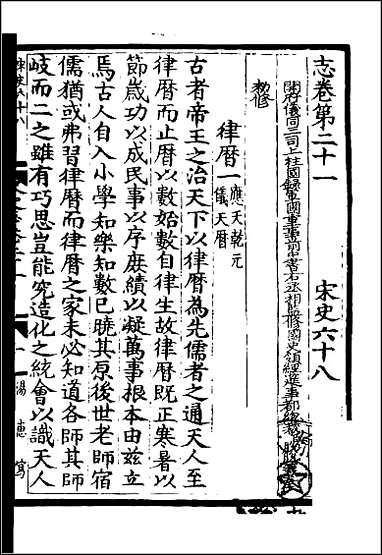 志卷第二十一　宋史六十八
開府儀同三司上柱國錄軍國重事前中書右丞相監修國史領經筵事都總裁臣脫脫等奉
敕修
律曆一
應天乾元
儀天曆
古者帝王之治天下以律曆為先儒者之通天人至
律曆而止曆以數始數自律生故律曆既正寒暑以
節歲功以成民事以序庶績以凝萬事根本由茲立
焉古人自入小學知樂知數已曉其原後世老師宿
儒猶或弗習律曆而律曆之家未必知道各師其師
岐而二之雖有巧思豈能究造化之統會以識天人
湯惠寫